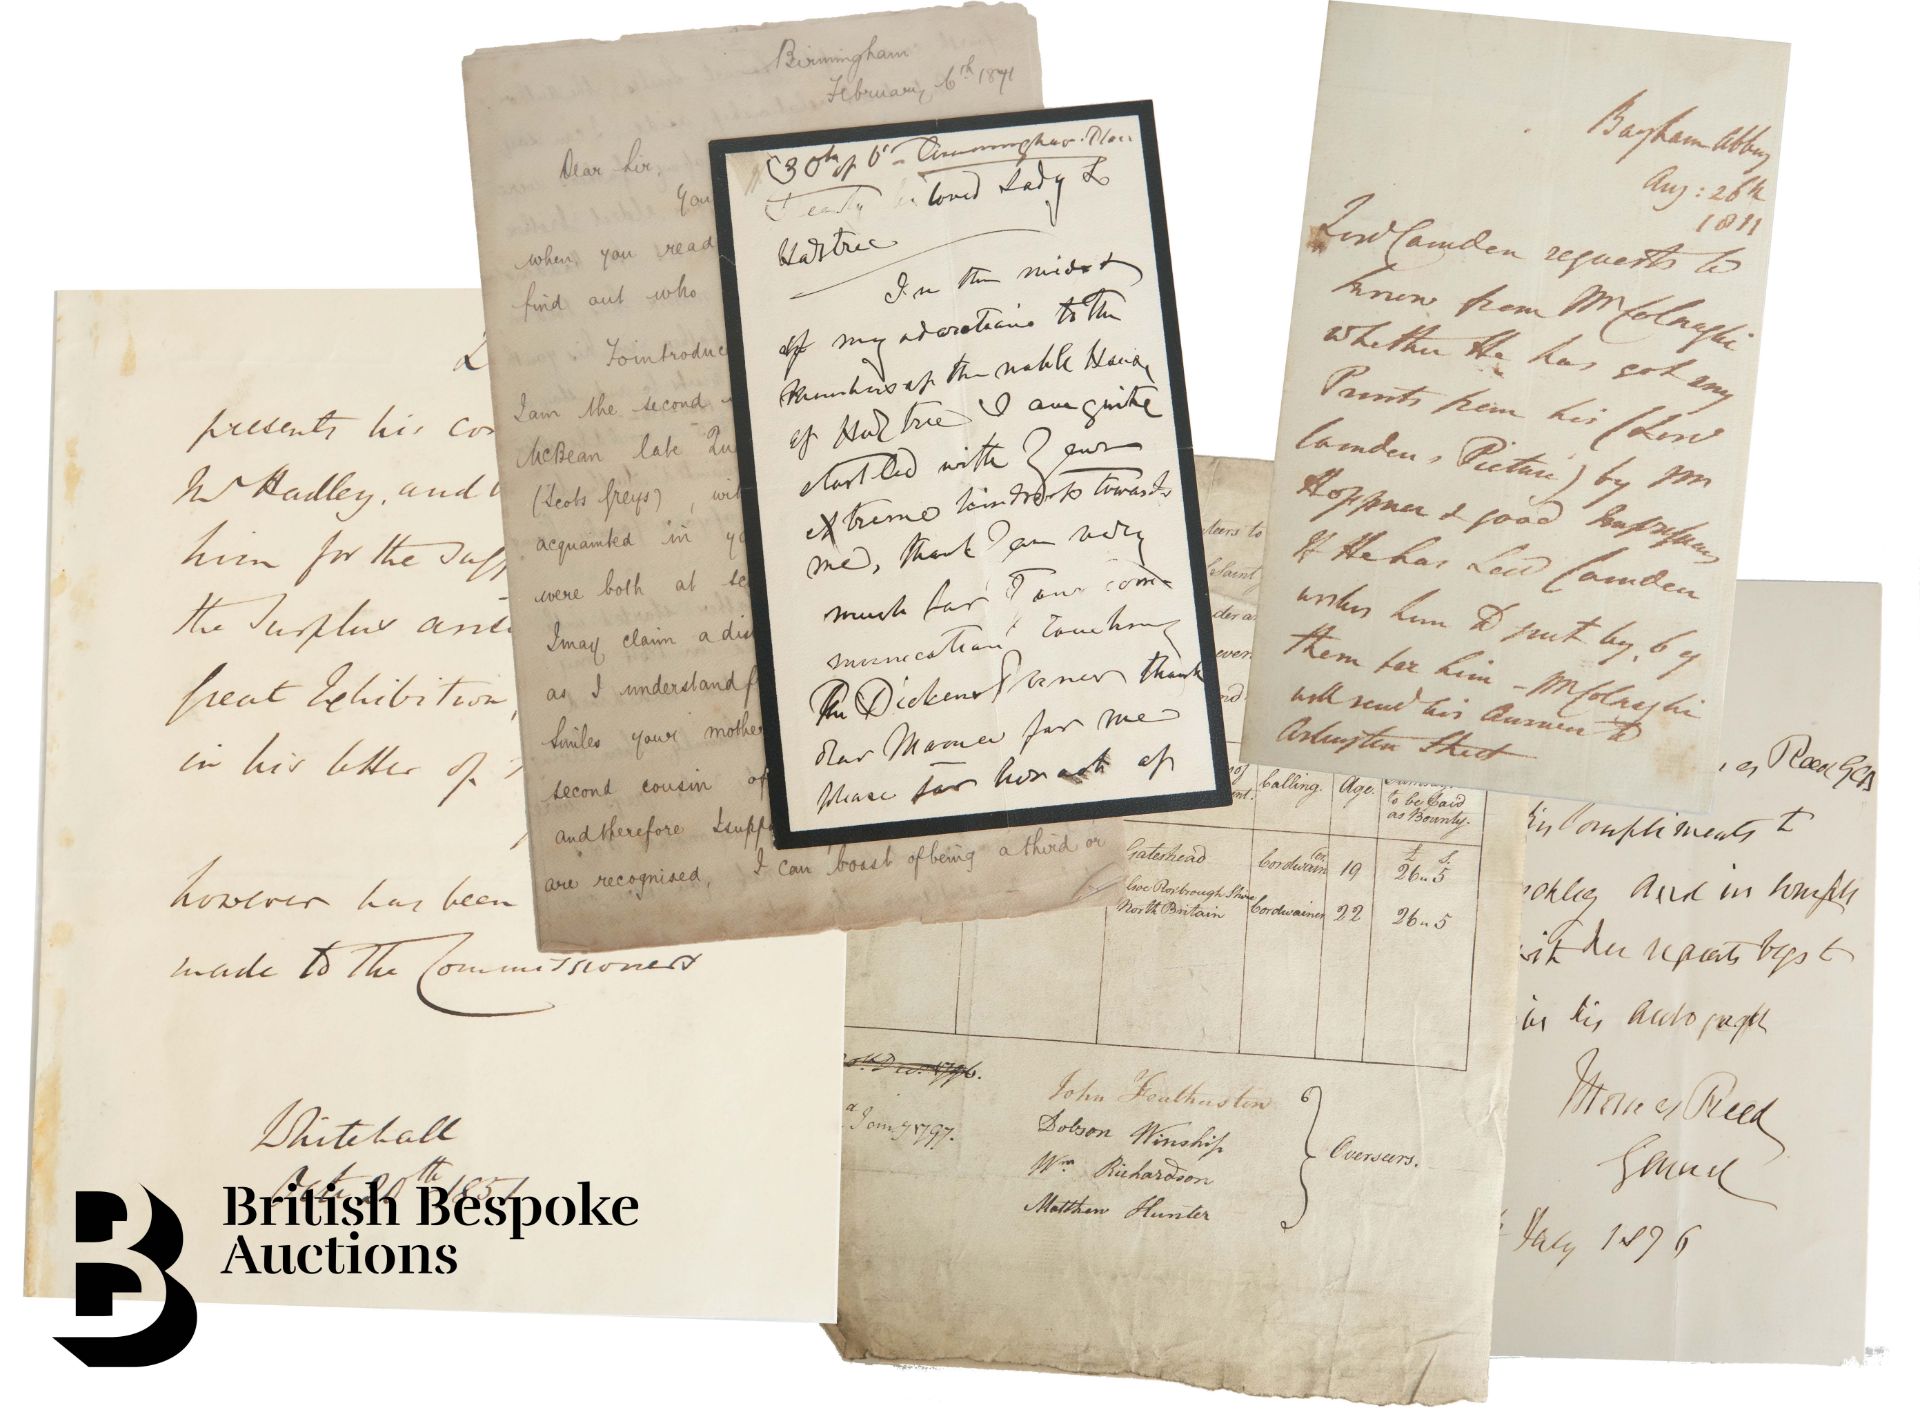 Birmingham
February 6th 1871
Dear Sir,
You
when, you read
find out who
To introduce
I am the second
McBean late Qu
(Scots Greys), wit
acquainted in yo
were both at sc
I may claim a dis
as I understand f
Smiles your mother
second cousin of
and therefore I supp
are recognised, I can boast of being a third or
loved Lady
In the midst
of my adorations to the
Members of the noble House
of I am quite
startled with your
extreme kindness towards
me, thank I am very
much for your com-
munication touching
The Dickens thank
dear for me
please for her
Bayham Abbey
Aug: 26th
1811
Lord Camden requests to
know from Mr Colnaghi
whether He has got any
Prints from his (Lord
Camden's Picture) by Mr
Hoppner & good Impressions
If He has Lord Camden
wishes him to put by, by
them for him – Mr Colnaghi
will send his Answer to
Arlington Street
presents his com
Mr Hadley, and
him for the sugg
the Surplus arisi
Great Exhibition,
in his letter of
however has been
made to the Commissioners
Whitehall
20th 1851
British Bespoke
Auctions
teers to
Saint
ever
Calling.
Age.
to be paid
as Bounty.
£ S.
Gateshead
Cordwainer
19
26 „ 5
Roxbrough Shire
North Britain
Cordwainer
22
26 „ 5
Decr. 1796.
Jany 1797.
John Featherston
Dobson Winship
Wm Richardson
Matthew Hunter
Overseers.
Reed GCB
his Compliments to
and in compli
with her requests begs to
his autograph
Reed
General
1876